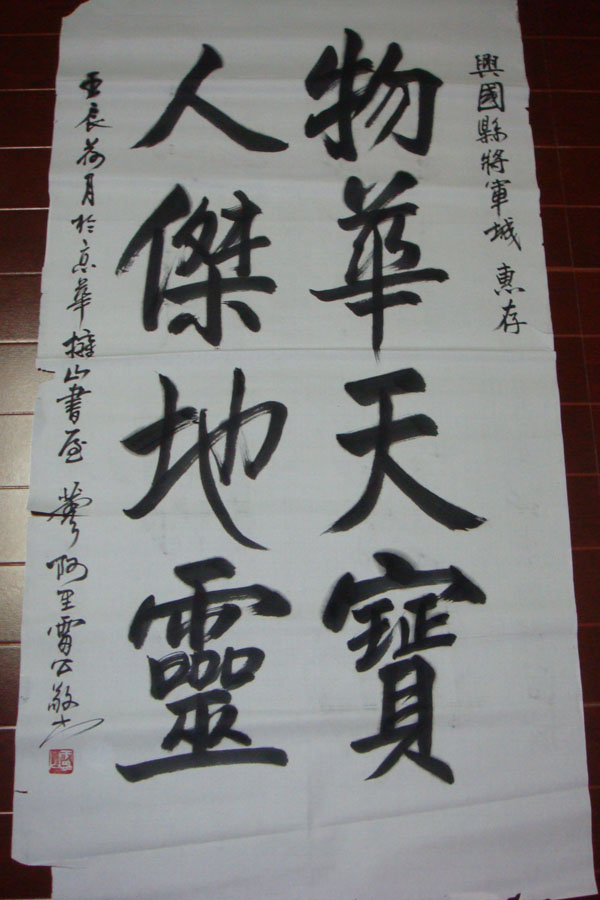 興國縣將軍城 惠存
物華天寶
人傑地靈
壬辰荷月於京華擁山書屋 阿里雷公敬書